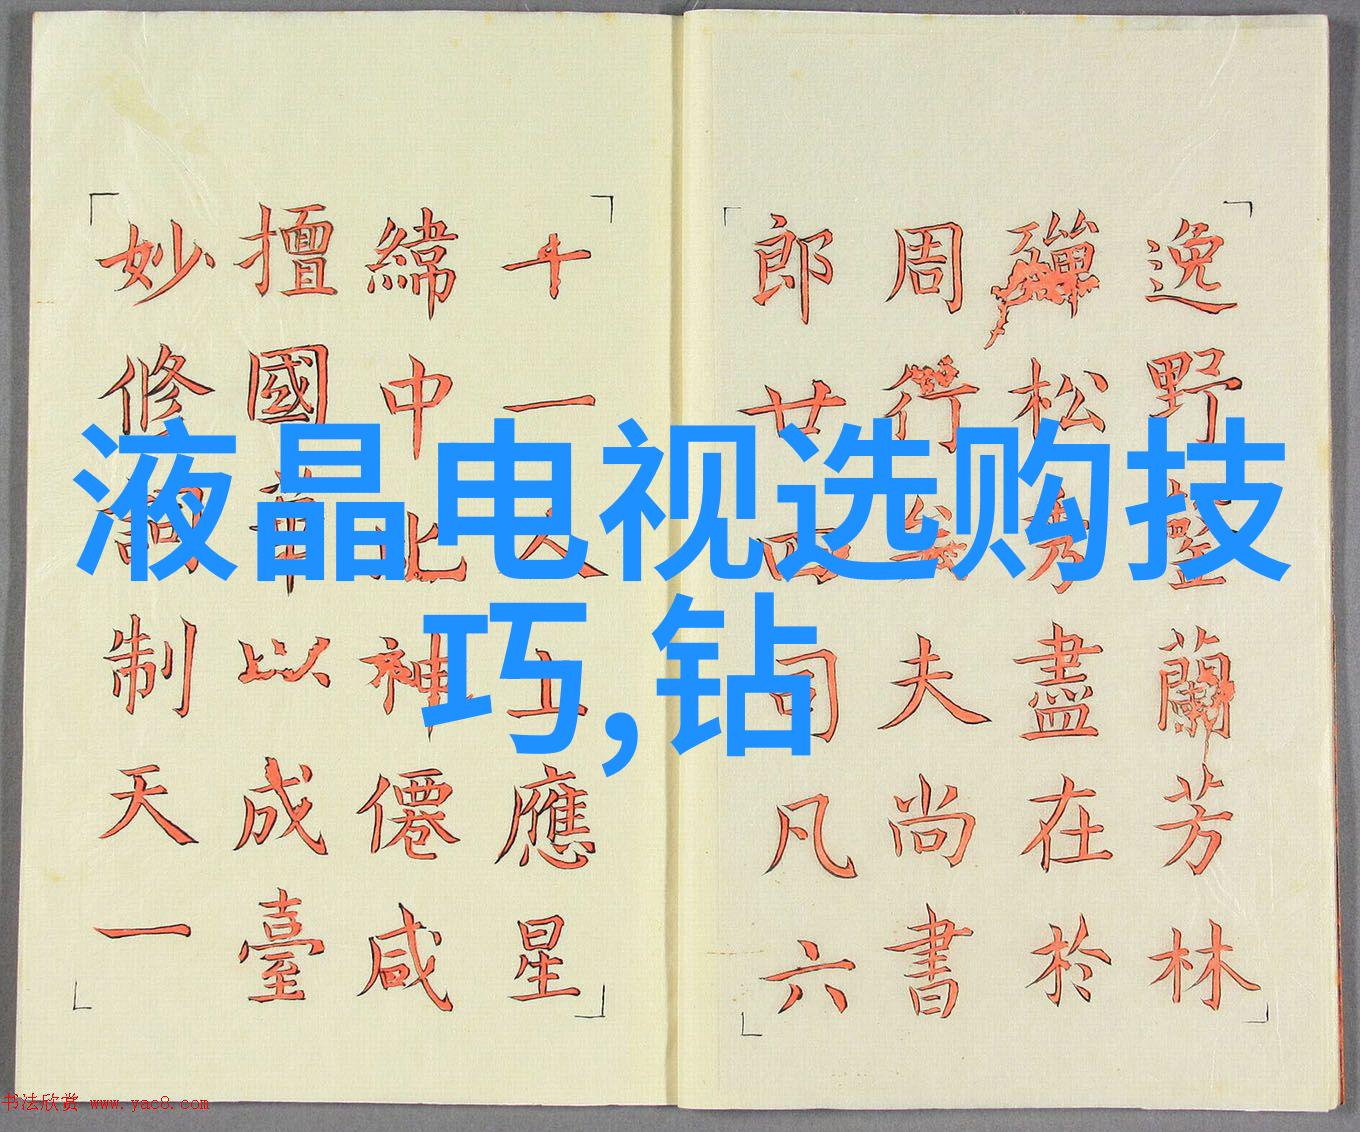 液晶电视选购技
巧,钻
逸野蘭芳林
松秀盡在於
周夫尚書
郎廿四司凡六
十一人上應星
緯中比神僊咸
擅國華以成臺
妙修詞制天一
书法欣赏 www.yac8.com